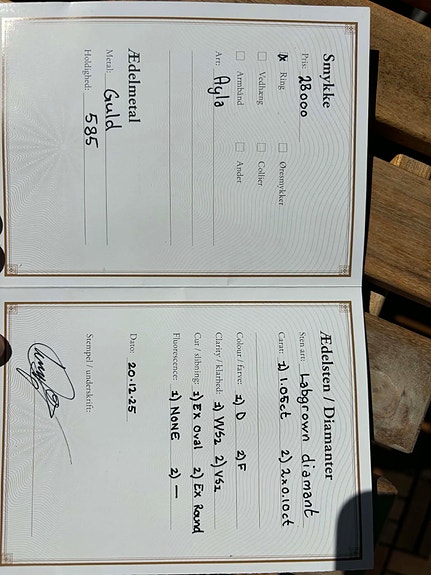 Smykke
Pris: 28000
☒ Ring ☐ Øresmykker
☐ Vedhæng ☐ Collier
☐ Armbånd ☐ Andet
Art: Ayla
Ædelmetal
Metal: Guld
Holdighed: 585
Ædelsten / Diamanter
Sten art: Labgrown diamant
Carat: 1) 1.05ct 2) 2x0.10ct
Colour / farve: 1) D 2) F
Clarity / klarhed: 1) VVS2 2) VS1
Cut / slibning: 1) Ex Oval 2) Ex Round
Fluorescence: 1) NONE 2) —
Dato: 20.12.25
Stempel / underskrift: